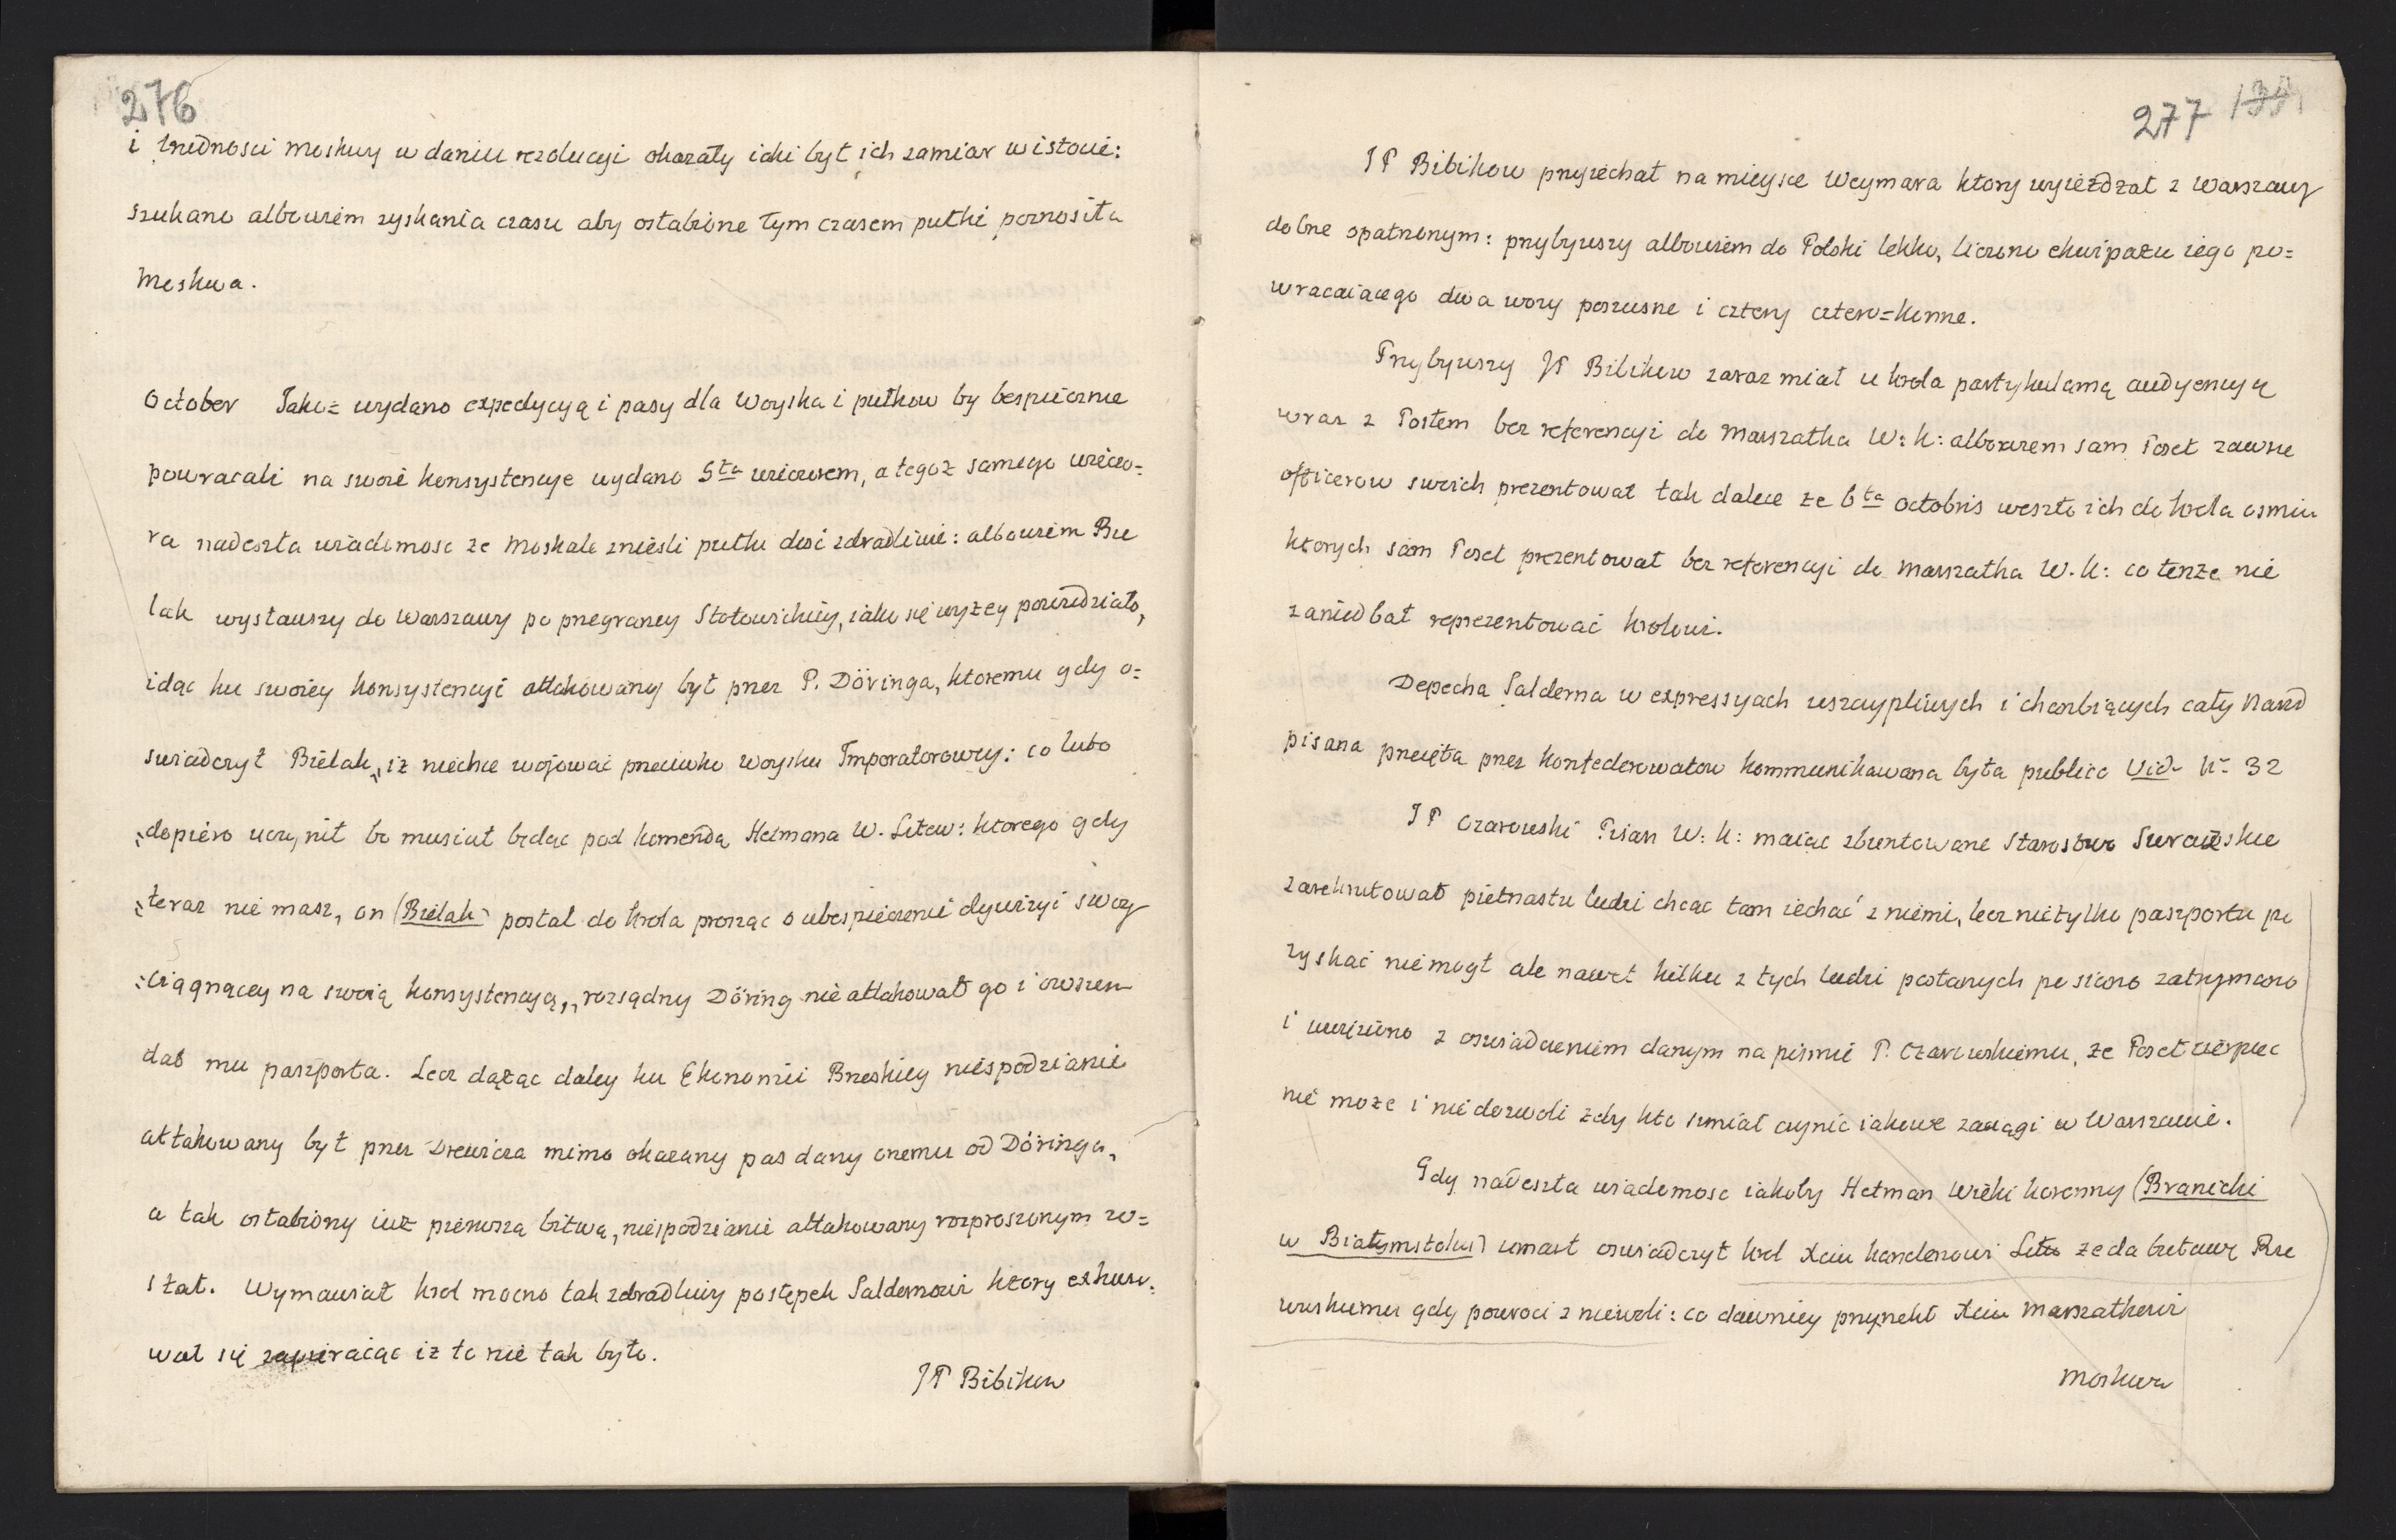 276
i trudnosci moskwy w daniu rezolucyi okazały iaki był ich zamiar w istocie:
szukano albowiem zyskania czasu aby osłabione tym czasem pułki poznosiła
moskwa.
October Jakoż wydano expedycyą i pasy dla Woyska i pułkow by bespiecznie
powracali na swoie konsystencye wydano 5ta wieczorem, a tegoż samego wieczo=
ra nadeszła wiadomosc że Moskale znieśli pułki dość zdradliwie: albowiem Bie
lak wysławszy do Warszawy po przegraney Stołowickiey, iako się wyżey powiedziało,
idąc ku swoiey konsystencyi attakowany był przez P. Döringa, ktoremu gdy o=
swiadczył Bielak „iż niechce wojować przeciwko woysku Imperatorowey: co lubo
„dopiero uczynił bo musiał będąc pod komendą Hetmana W. Litew: ktorego gdy
„teraz nie masz, on (Bielak) posłał do Krola prosząc o ubespieczenie dywizyi swey
„ciągnącey na swoią konsystencyą„, rozsądny Döring nie attakował go i owszem
dał mu paszporta. Lecz dążąc daley ku Ekonomii Brzeskiey niespodzianie
attakowany był przez Drewicza mimo okazany pas dany onemu od Döringa,
a tak osłabiony iuż pierwszą bitwą, niespodzianie attakowany rozproszonym zo=
stał. Wymawiał krol mocno tak zdradliwy postępek Saldernowi ktory exkuzo=
wał się zapieraiąc iż to nie tak było.
JP Bibikow
277 139
JP Bibikow przyiechał na mieysce Weymara ktory wyieżdzał z Warszawy
dobrze opatrzonym: przybywszy albowiem do Polski lekko, liczono ekwipażu iego po=
wracaiącego dwa wozy poszusne i cztery cztero=konne.
Przybywszy JP Bibikow zaraz miał u krola partykularną audyencyą
wraz z Posłem bez referencyi do Marszałka W: K: albowiem sam Poseł zawsze
officerow swoich prezentował tak dalece że 6ta octobris weszło ich do krola osmiu
ktorych sam Poseł prezentował bez referencyi do Marszałka W. K: co tenże nie
zaniedbał reprezentować krolowi.
Depecha Salderna w expressyach uszczypliwych i chanbiących cały Narod
pisana przeięta przez konfederowatow kommunikowana była publice Vid- N- 32
JP Ozarowski Pisarz W: K: maiąc zbuntowane Starostwo Surazskie
zarekrutował piętnastu ludzi chcąc tam iechać z niemi, lecz nietylko paszportu po
zyskać niemogł ale nawet kilku z tych ludzi posłanych po siano zatrzymano
i uwięziono z oswiadczeniem danym na pismie P. Ozarowskiemu, że Poseł cierpiec
nie może i nie dozwoli żeby kto smiał czynic iakowe zaciągi w Warszawie.
Gdy nadeszła wiadomosc iakoby Hetman Wielki koronny (Branicki
w Białymstoku) umarł oswiadczył krol Xciu kanclerzowi Litu że da buławę Rze
wuskiemu gdy powroci z niewoli: co dawniey przyrzekł Xciu Marszałkowi
Moskwa